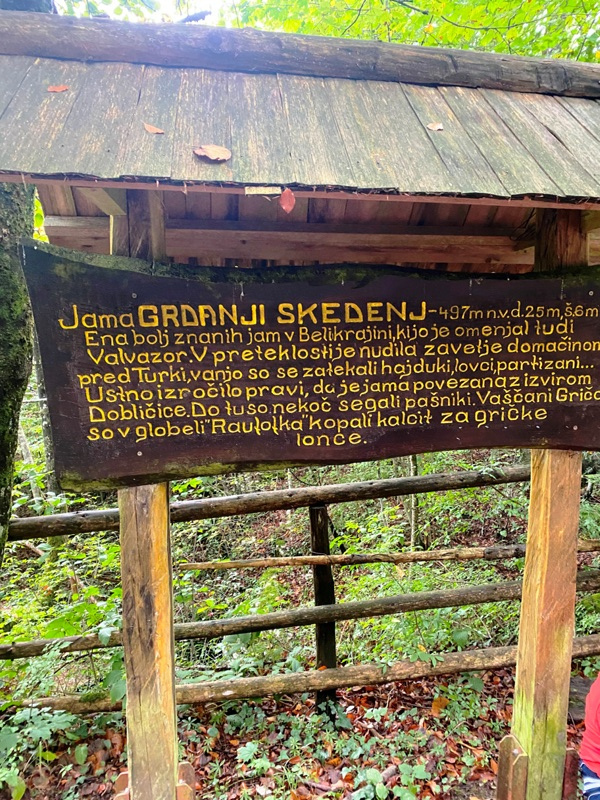 Jama GRDANJI SKEDENJ-497m n.v.d.25m,š.6m
Ena bolj znanih jam v Belikrajini,ki jo je omenjal tudi
Valvazor.V preteklosti je nudila zavetje domačinom
pred Turki,vanjo so se zatekali hajduki,lovci,partizani...
Ustno izročilo pravi, da je jama povezana z izvirom
Dobličice.Do tu so nekoč segali pašniki. Vaščani Griča
so v globeli "Rautotka" kopali kalcit za gričke
lonce.